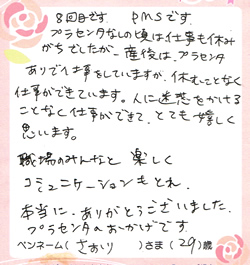 8回目です。 PMSです。
プラセンタなしの頃は仕事も休み
がちでしたが、産後は、プラセンタ
ありで仕事をしていますが、休むことなく
仕事ができています。人に迷惑をかける
ことなく仕事ができて、とても嬉しく
思います。
職場のみんなと 楽しく
コミュニケーションもとれ、
本当に、ありがとうございました。
プラセンタのおかげです。
ペンネーム( さおり )さま (29)歳